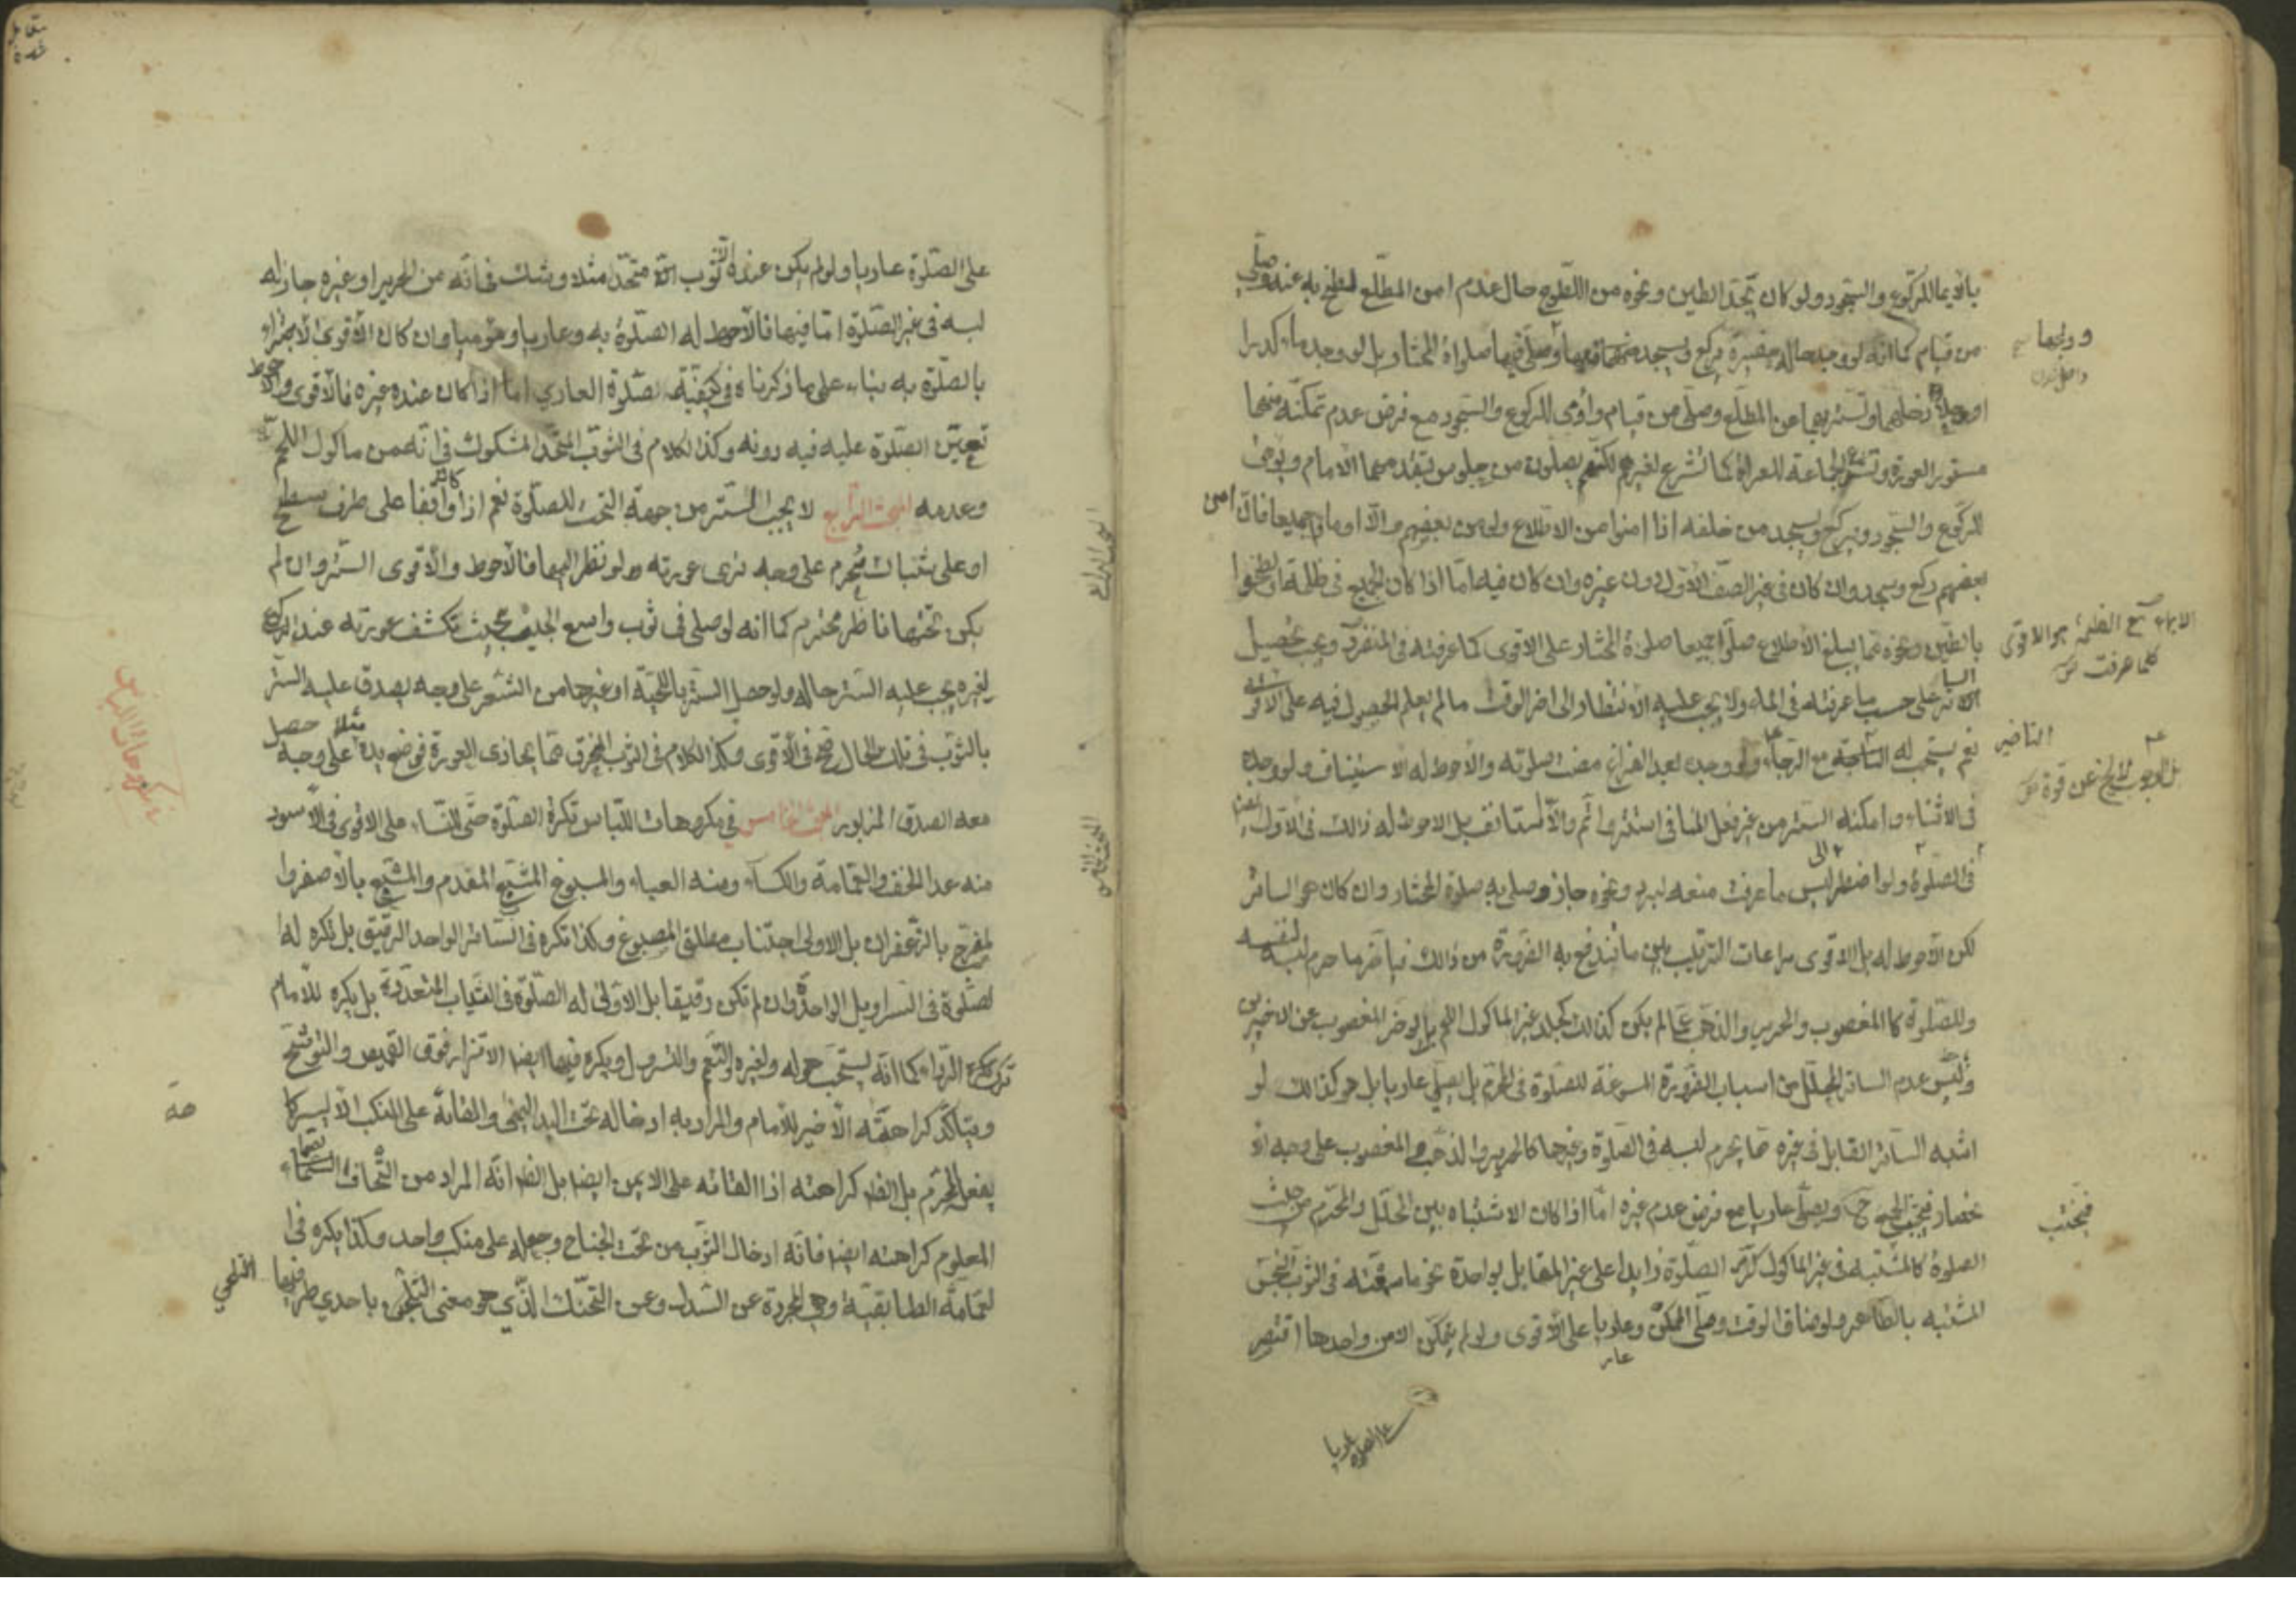 باقيها للركوع والسجود ولو كان يجد الطين ونحوه من اللطوخ حال عدم امن المطلع لطخ به عند وصلى
من قيام كما انه لو وجد حالة حفيرة يركع ويسجد فيها وصلى فيها صلواة المختار بل لو وجد ماء كدرا
او دخلهما وتستر بهما عن المطلع وصلى من قيام واومى للركوع والسجود مع فرض عدم تمكنه منهما
مستور العورة وتشرع الجماعة للعراة كما تشرع لغيرهم لكنهم يصلون من جلوس يتقدمهما الامام ويومى
للركوع والسجود ويركع ويسجد من خلفه اذا امنوا من الاطلاع ولو من بعضهم والا اوماوا جميعا فان امن
بعضهم ركع وسجد وان كان في غير الصف الاول دون غيره وان كان فيه اما اذا كان الجميع في ظلمة او لطخوا
بالطين ونحوه مما يمنع الاطلاع صلوا جميعا صلوة المختار على الاقوى كما عرفته في المنفرد ويجب تحصيل
الساتر على حسب ما عرفته في الماء ولا يجب عليه الانتظار الى اخر الوقت ما لم يعلم الحصول فيه على الاقوى
نعم يستحب له مع الرجاء ولو وجده بعد الفراغ مضت صلوته والاحوط له الاستيناف ولو وجده
في الاثناء وامكنه الستر من غير فعل المنافى استتر واتم والا استانف بل الاحوط له ذالك في الاول ايضا
في الصلوة ولو اضطر الى لبس ما عرفت منعه لبرد ونحوه جاز وصلى به صلوة المختار وان كان هو الساتر
لكن الاحوط له بل الاقوى مراعات الترتيب بين ما تندفع به الضرورة من ذالك فيأخر ما حرم لبسه لنفسه
وللصلوة كالمغصوب والحرير والذهب عما لم يكن كذالك كجلد غير الماكول اللحم بل يوخر المغصوب عن الاخيرين
وليس عدم الساتر المحلل من اسباب الضرورة المسوغة للصلوة في المحرم بل يصلي عاريا بل هو كذالك لو
اشتبه الساتر القابل في غيره مما يحرم لبسه في الصلوة وغيرها كالحرير والذهب والمغصوب على وجه
فيجتنب الجميع ح ويصلى عاريا مع فرض عدم غيره اما اذا كان الاشتباه بين المحلل والمحرم من حيث
الصلوة كالمشتبه في غير الماكول كرر الصلوة زايدا على غير المقابل بواحدة نحو ما سمعته في الثوب النجس
المشتبه بالطاهر ولو ضاق الوقت صلى الممكن وعاريا على الاقوى ولو لم يتمكن الا من واحدها اقتصر
على الصلوة عاريا
الايماء مع الظلمة هو الاقوى
كما عرفت
التاخير
بل الوجوب لا يخ عن قوة
فيجتنب
على الصلوة عاريا ولو لم يكن عنده الا ثوب متحد مثلا وشك في انه من الحرير او غيره جاز له
لبسه في غير الصلوة اما فيها فالاحوط له الصلوة به وعاريا وموميا وان كان الاقوى الاجتزاء
بالصلوة به بناء على ما ذكرناه في كيفية صلوة العاري اما اذا كان عنده غيره فالاقوى والاحوط
تعيين الصلوة عليه فيه دونه وكذا الكلام في الثوب المتحد المشكوك في انه من ماكول اللحم
وعدمه المبحث الرابع لا يجب الستر من جهة التحت للصلوة نعم اذا كان واقفا على طرف سطح
او على شباك مخرم على وجه ترى عورته لو نظر اليها فالاحوط والاقوى الستر وان لم
يكن تحتها ناظر محترم كما انه لو صلى في ثوب واسع الجيب بحيث تكشف عورته عند الركوع
لغيره يجب عليه الستر حاله ولو حصل الستر باللحية او غيرها من الشعر على وجه يصدق عليه الستر
بالثوب في تلك الحال صح في الاقوى وكذا الكلام في الثوب المخرق مما يحاذى العورة فوضع يده مثلا على وجه حصل
معه الصدق المزبور المبحث الخامس في مكروهات اللباس تكره الصلوة حتى للنساء على الاقوى في الاسود
منه عدا الخف والعمامة والكساء ومنه العباء والمصبوغ المشبع المقدم والمشبع بالاصفر وا
لمضرج بالزعفران بل الاولى اجتناب مطلق المصبوغ وكذا تكره في الساتر الواحد الرقيق بل تكره له ا
لصلوة في السراويل الواحدة وان لم تكن رقيقا بل الاولى له الصلوة في الثياب المتعددة بل يكره للامام
ترك الرداء كما انه يستحب له ولغيره التعمم والتسرول ويكره فيها ايضا الاتزار فوق القميص والتوشح
ويتاكد كراهته الاخير للامام والمراد به ادخاله تحت اليد اليمنى والقائه على المنكب الايسر كما
يفعل المحرم بل الظ كراهته اذا القائه على الايمن ايضا بل الظ انه المراد من التحاف الصماء
المعلوم كراهته ايضا فانه ادخال الثوب من تحت الجناح وجعله على منكب واحد وكذا يكره في ا
لعمامة الطابقية وهي المجردة عن السدل وعن التحنك الذي هو معنى التلحى باحدي طرفيها
المبحث الرابع
المبحث الخامس